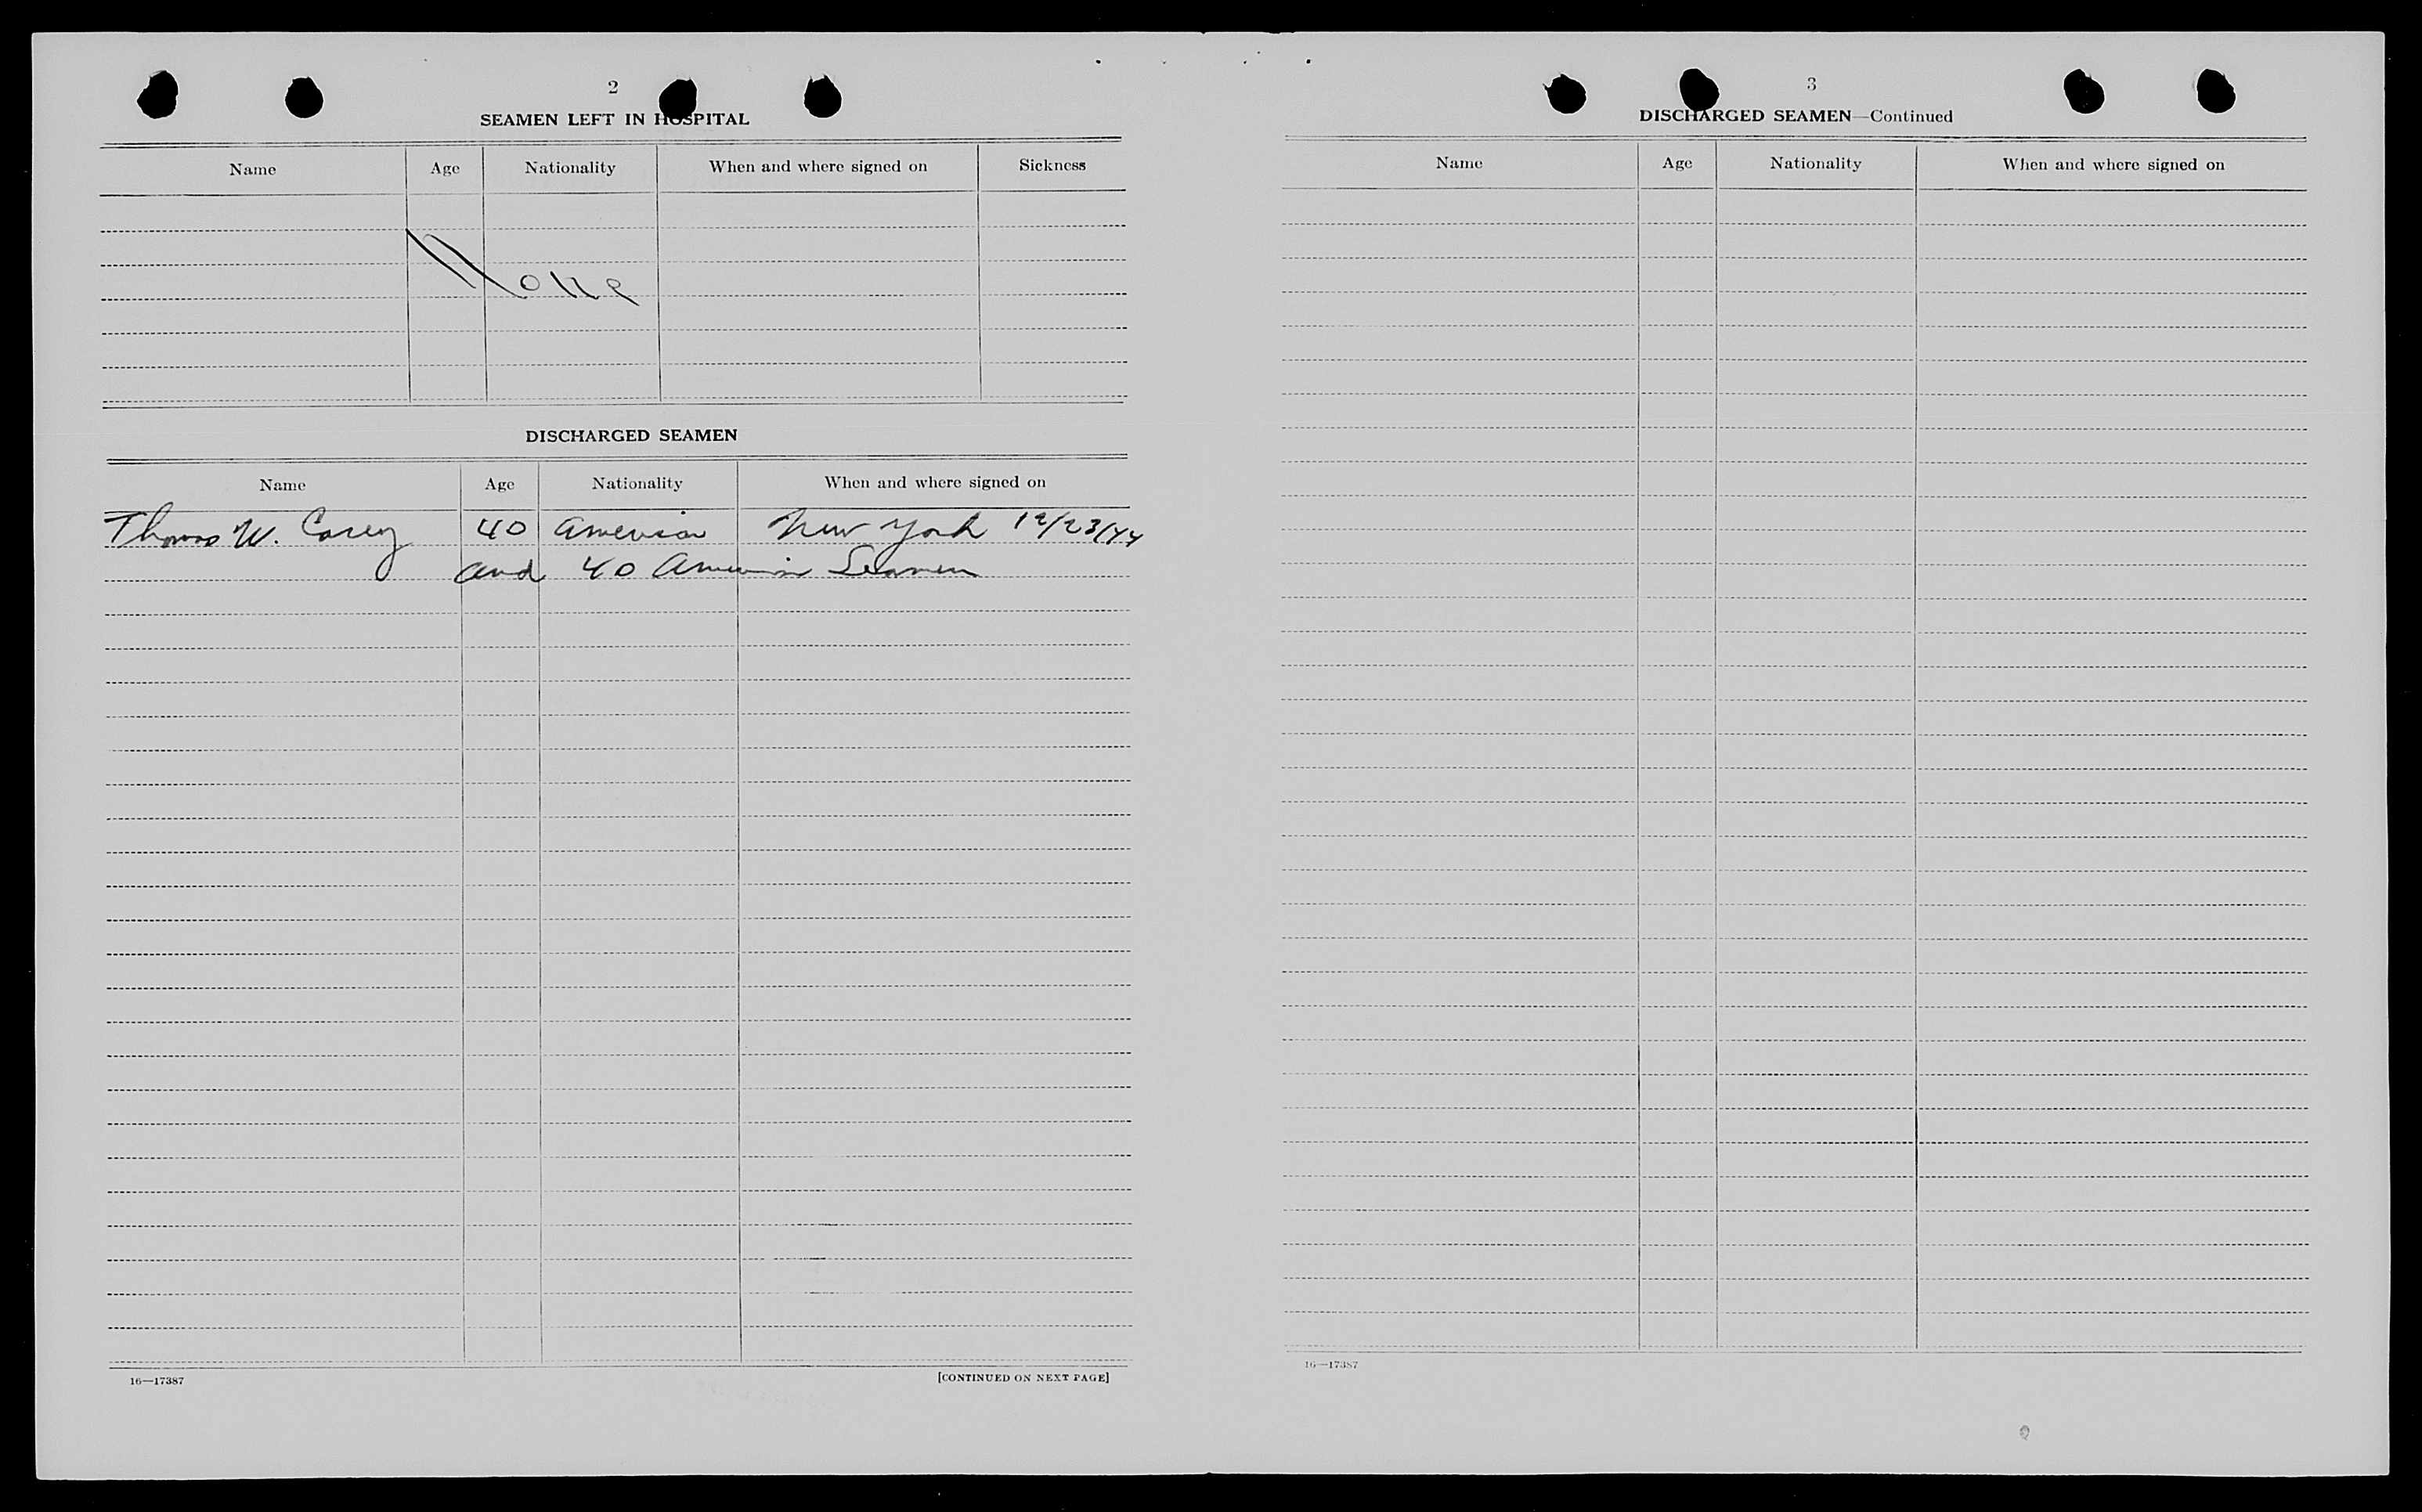 2
SEAMEN LEFT IN HOSPITAL
Name Age Nationality When and where signed on Sickness
None
DISCHARGED SEAMEN
Name Age Nationality When and where signed on
Thomas W. Carey 40 American New York 12/23/44
and 40 American Seamen
16—17387 [CONTINUED ON NEXT PAGE]
3
DISCHARGED SEAMEN—Continued
Name Age Nationality When and where signed on
16—17387